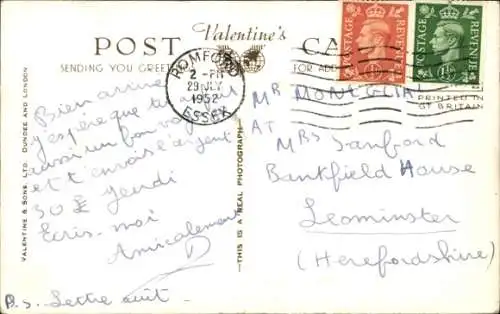 Valentine's
POST CA
SENDING YOU GREET
FOR ADD
ROMFORD
2 - PM
29 JLY
1952
ESSEX
POSTAGE REVENUE
POSTAGE REVENUE
PRINTED IN
GT BRITAIN
VALENTINE & SONS, LTD. DUNDEE AND LONDON
THIS IS A REAL PHOTOGRAPH
Bien arrivé
j'espère que tu as
aussi un bon voyage
et t'envoie l'argent
30 £ Jeudi
Ecris-moi
Amicalement
P.S. Lettre suit.
MR MONEGLIA
AT
MRS Sanford
Bankfield House
Leominster
(Herefordshire)